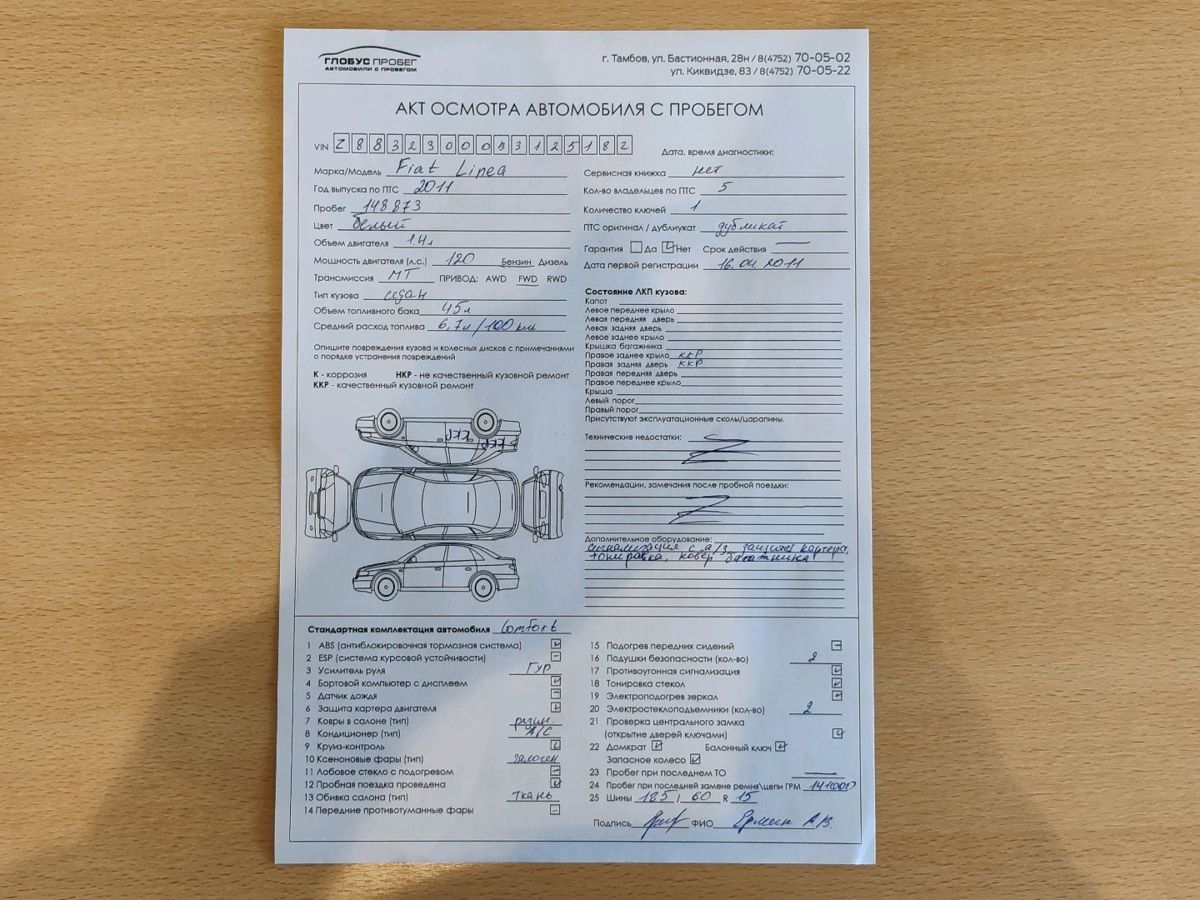 ГЛОБУС ПРОБЕГ
АВТОМОБИЛИ С ПРОБЕГОМ
г. Тамбов, ул. Бастионная, 28н / 8(4752) 70-05-02
ул. Киквидзе, 83 / 8(4752) 70-05-22
АКТ ОСМОТРА АВТОМОБИЛЯ С ПРОБЕГОМ
VIN Z88323000B3125182
Дата, время диагностики:
Марка/Модель Fiat Linea
Год выпуска по ПТС 2011
Пробег 148873
Цвет белый
Объем двигателя 1.4л
Мощность двигателя (л.с.) 120 Бензин Дизель
Трансмиссия МТ ПРИВОД: AWD FWD RWD
Тип кузова седан
Объем топливного бака 45л
Средний расход топлива 6,7л/100км
Сервисная книжка нет
Кол-во владельцев по ПТС 5
Количество ключей 1
ПТС оригинал / дубликат дубликат
Гарантия Да Нет Срок действия
Дата первой регистрации 16.04.2011
Опишите повреждения кузова и колесных дисков с примечаниями
о порядке устранения повреждений
К - коррозия НКР - не качественный кузовной ремонт
ККР - качественный кузовной ремонт
ККР ККР
Состояние ЛКП кузова:
Капот
Левое переднее крыло
Левая передняя дверь
Левая задняя дверь
Левое заднее крыло
Крышка багажника
Правое заднее крыло ККР
Правая задняя дверь ККР
Правая передняя дверь
Правое переднее крыло
Крыша
Левый порог
Правый порог
Присутствуют эксплуатационные сколы/царапины.
Технические недостатки:
Рекомендации, замечания после пробной поездки:
Дополнительное оборудование:
сигнализация с а/з, защита картера,
тонировка, ковер багажника
Стандартная комплектация автомобиля Comfort
1 ABS (антиблокировочная тормозная система)
2 ESP (система курсовой устойчивости)
3 Усилитель руля ГУР
4 Бортовой компьютер с дисплеем
5 Датчик дождя
6 Защита картера двигателя
7 Ковры в салоне (тип) резин.
8 Кондиционер (тип) А/С
9 Круиз-контроль
10 Ксеноновые фары (тип) галоген
11 Лобовое стекло с подогревом
12 Пробная поездка проведена
13 Обивка салона (тип) ткань
14 Передние противотуманные фары
15 Подогрев передних сидений
16 Подушки безопасности (кол-во) 2
17 Противоугонная сигнализация
18 Тонировка стекол
19 Электроподогрев зеркал
20 Электростеклоподъемники (кол-во) 2
21 Проверка центрального замка
(открытие дверей ключами)
22 Домкрат Балонный ключ
Запасное колесо
23 Пробег при последнем ТО
24 Пробег при последней замене ремня\цепи ГРМ 141000
25 Шины 185 / 60 R 15
Подпись ФИО Ермин А.В.